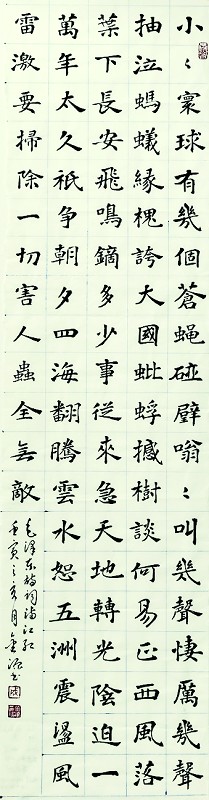 小〻寰球有幾個蒼蠅碰壁嗡〻叫幾聲悽厲幾聲
抽泣螞蟻緣槐誇大國蚍蜉撼樹談何易正西風落
葉下長安飛鳴鏑多少事從來急天地轉光陰迫一
萬年太久祇争朝夕四海翻騰雲水怒五洲震盪風
雷激要掃除一切害人蟲全無敵
毛泽东诗词满江红
壬寅之亥月金源书